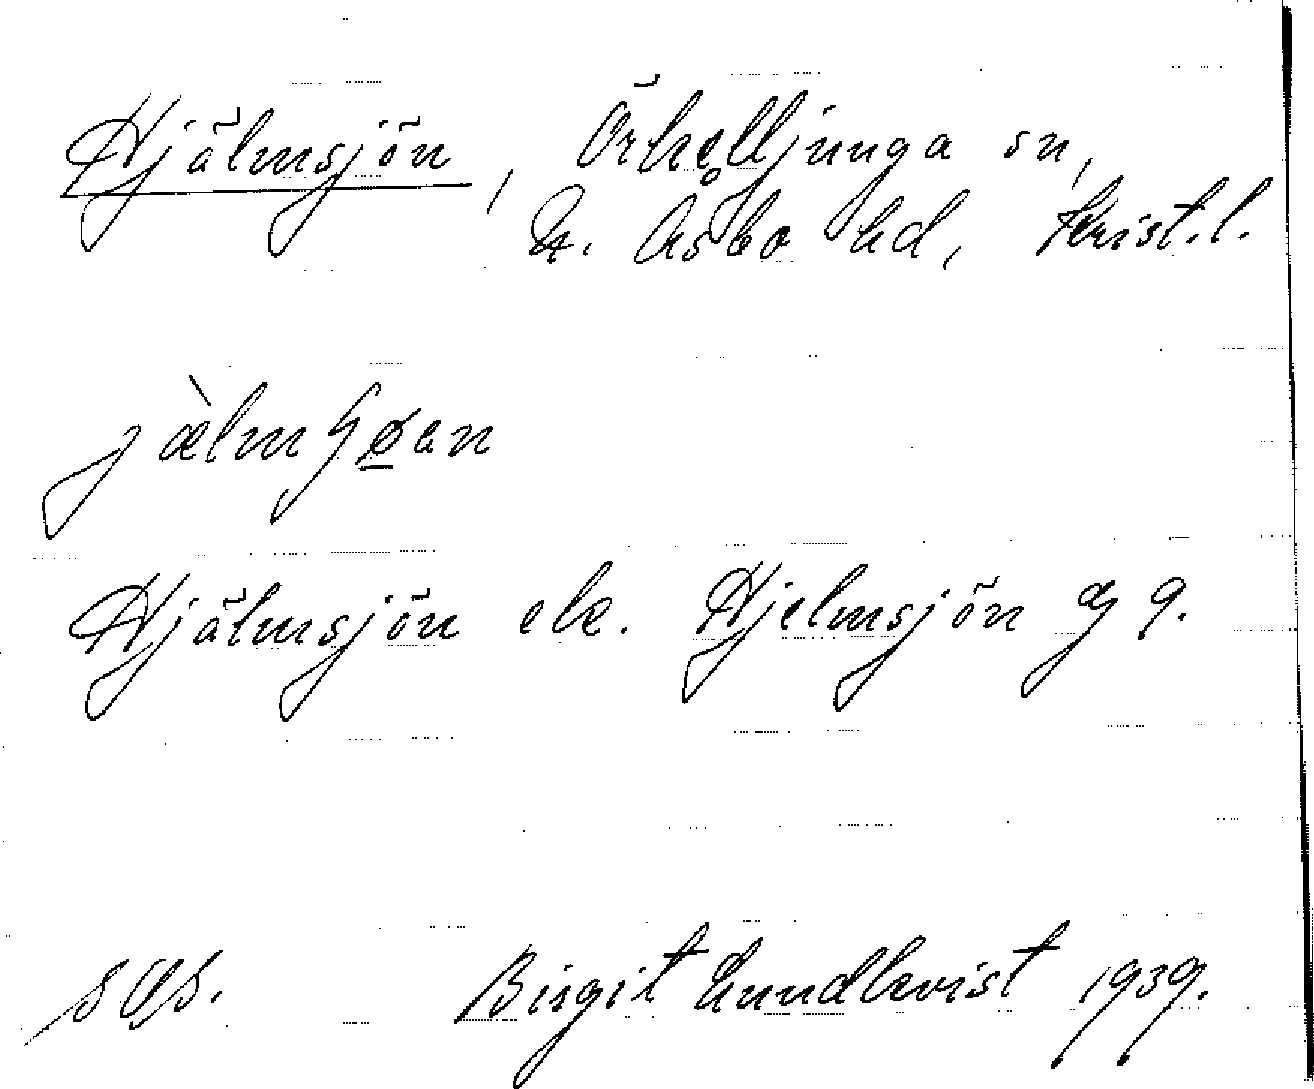 Hjälmsjön, Örkelljunga sn,
N. Åsbo hd, Krist.l.
jàlmʃøen
Hjälmsjön ek. Hjelmsjön
sas. Birgit Lundkvist 1939.